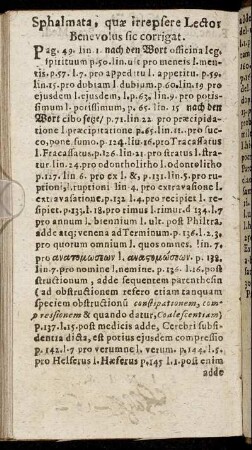 Sphalmata, quæ irrepsere Lector
Benevolus sic corrigat.
Pag. 49. lin 1 nach den Wort officina leg.
spirituum p.50. lin. ult pro meneis l. men-
tis. p.57. l.7. pro appeditu l. apperitu. p.59.
lin.15. pro dobiam l. dubiam. p.60. lin.19 pro
ejusdem l. ejusdem, l. p.63. lin.9. pro potis-
simum l. potissimum, p. 65. lin. 15 nach den
Wort cibo setze/ p.71 lin 22 pro præcipida-
tione l. præcipitatione p.65. lin.11. pro suc-
co, pone sumo. p.124. liu.16. pro Tracassatus
l. Fracassatus. p.126. lin.21 pro stratus l. stra-
tur. lin.24. pro odoncholitho l. odontolitho
p.127. lin 6. pro ex l. &, p.131. lin.5. pro rup-
tioni, l. ruptioni lin 4. pro extravasione l.
extavasatione. p.132 l.4. pro recipiet l. re-
spiet. p.133. l.18. pro rimus l. rimur. d 134. l.7
pro annum l. biennium l. ult. post Philtra,
adde atq; venena ad Terminum. p.136. l.2.3,
pro quorum omnium l. quos omnes. lin. 7,
pro l. p. 138.
lin.7. pro nomine l. nemine. p.136. l.16. post
obstructionum, adde sequentem parenthesin
(ad obstructionem refero etiam tanquam
speciem obstructionis constipationem, com-
pressionem & quando datur, Coalescentiam)
p.137. l.15. post medicis adde, Cerebri subsi-
dentia dicta, est potius ejusdem compressio
p. 142. l.7 pro verumne l. verum. p. 144. l.5.
pro Helferus l. Hæferus p.145 l.1. post enim
adde